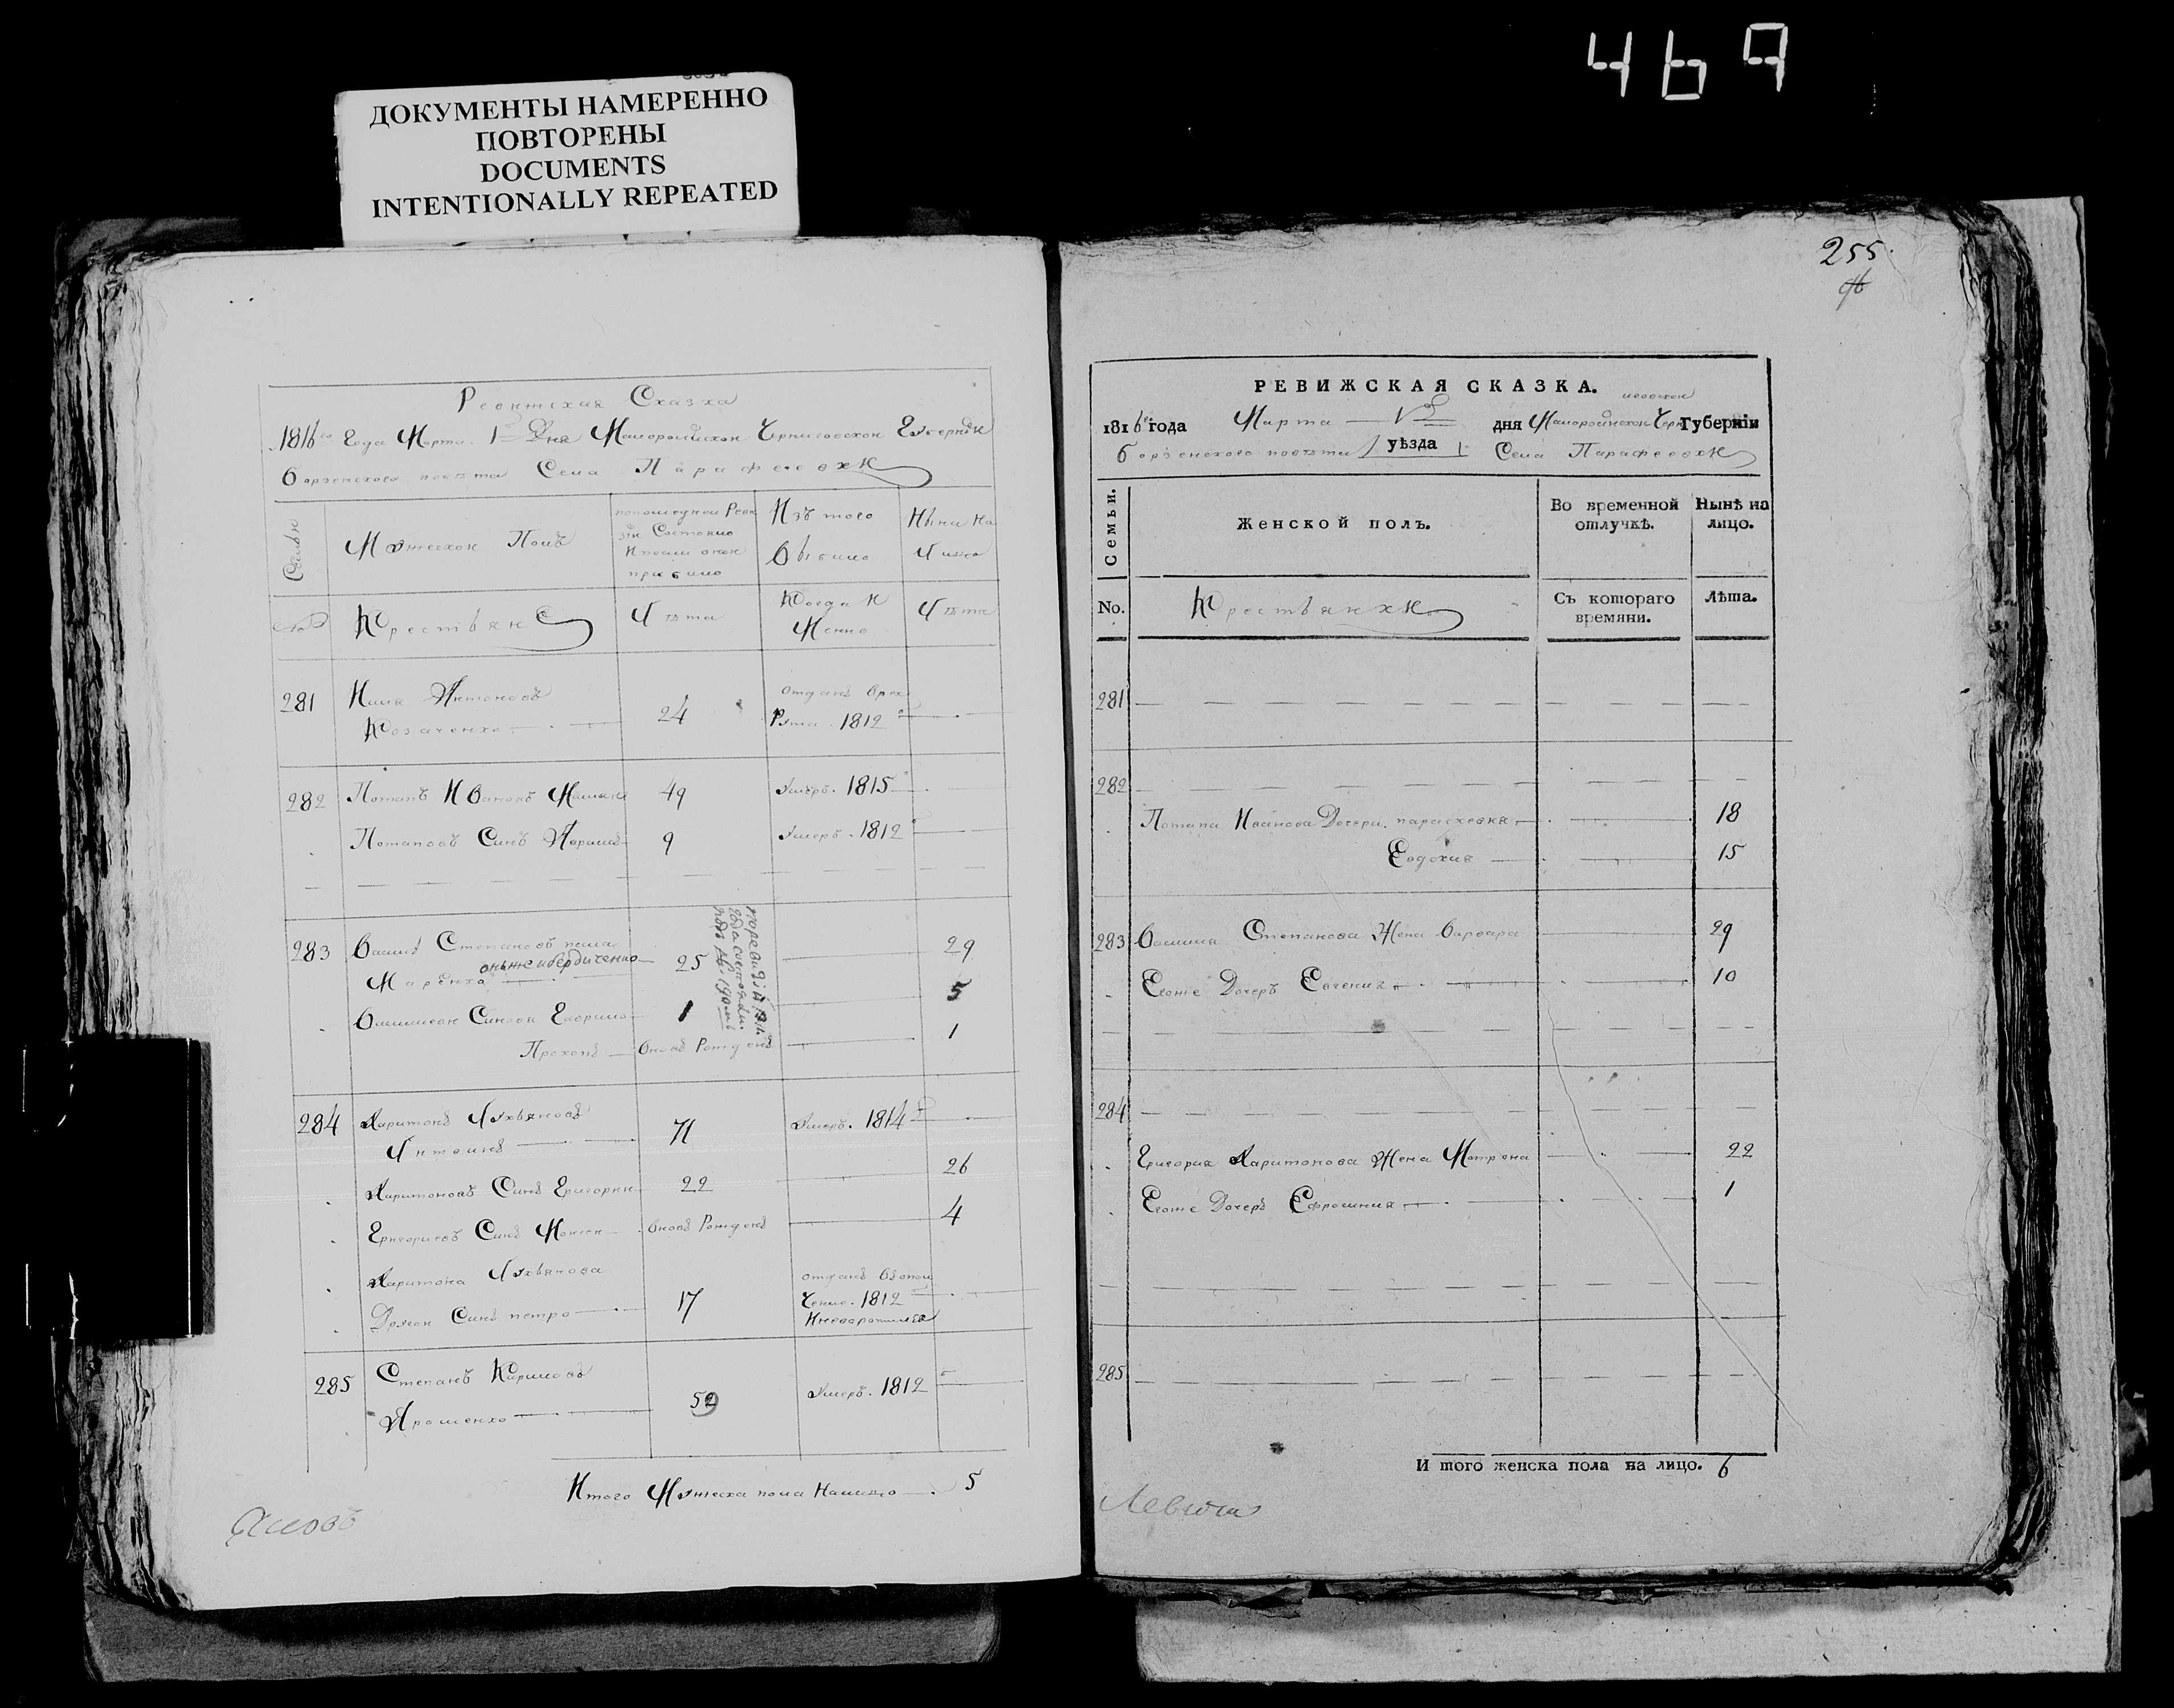 469
ДОКУМЕНТЫ НАМЕРЕННО
ПОВТОРЕНЫ
DOCUMENTS
INTENTIONALLY REPEATED
Ревижская Сказка
1816го Года Марта 1го Дня Малоросийской Черниговской Губерніи
Борзенского повета Села Парафеевки
Семьи
Мужеской Полъ
Изъ того
Выбыло
Ныне на
Лицо
№
Крестьяне
Лѣта
Когда И
Менно
Лѣта
281
Илия Антоновъ
Козаченко
24
отданъ Врек
Руты 1812
282
Потапъ Ивановъ
49
Умеръ. 1815
Потаповъ Синъ
9
Умеръ. 1812
283
Степановъ
онъже и бердиченко
25
29
Синови Гаврило
1
5
Прокопъ
вновь Рожденъ
1
284
Харитонъ Лукьяновъ
71
Умеръ. 1814
Харитоновъ Синъ Григорий
22
26
Григориевъ Синъ
вновь Рожденъ
4
Харитона Лукьянова
Другой Синъ петро
17
отданъ Вопол
чение. 1812
Иневоротился
285
Степанъ Карповъ
Ярошенко
52
Умеръ. 1812
Итого Мужеска пола Налицо
5
255
РЕВИЖСКАЯ СКАЗКА.
1816 года Марта 1го дня Малоросийской Черниговской Губерніи
Борзенского повета уѣзда Села Парафеевки
Семьи.
Женской полъ.
Во временной
отлучкѣ.
Нынѣ на
лицо.
No.
Крестьянки
Съ котораго
времяни.
Лѣта.
281
282
Потапа Иванова Дочери. парасковия
18
Евдокия
15
283
Степанова Жена Варвара
29
Егоже Дочеръ Евгения
10
284
Григория Харитонова Жена Мотрона
22
Егоже Дочеръ Ефросиния
1
285
И того женска пола на лицо. 6